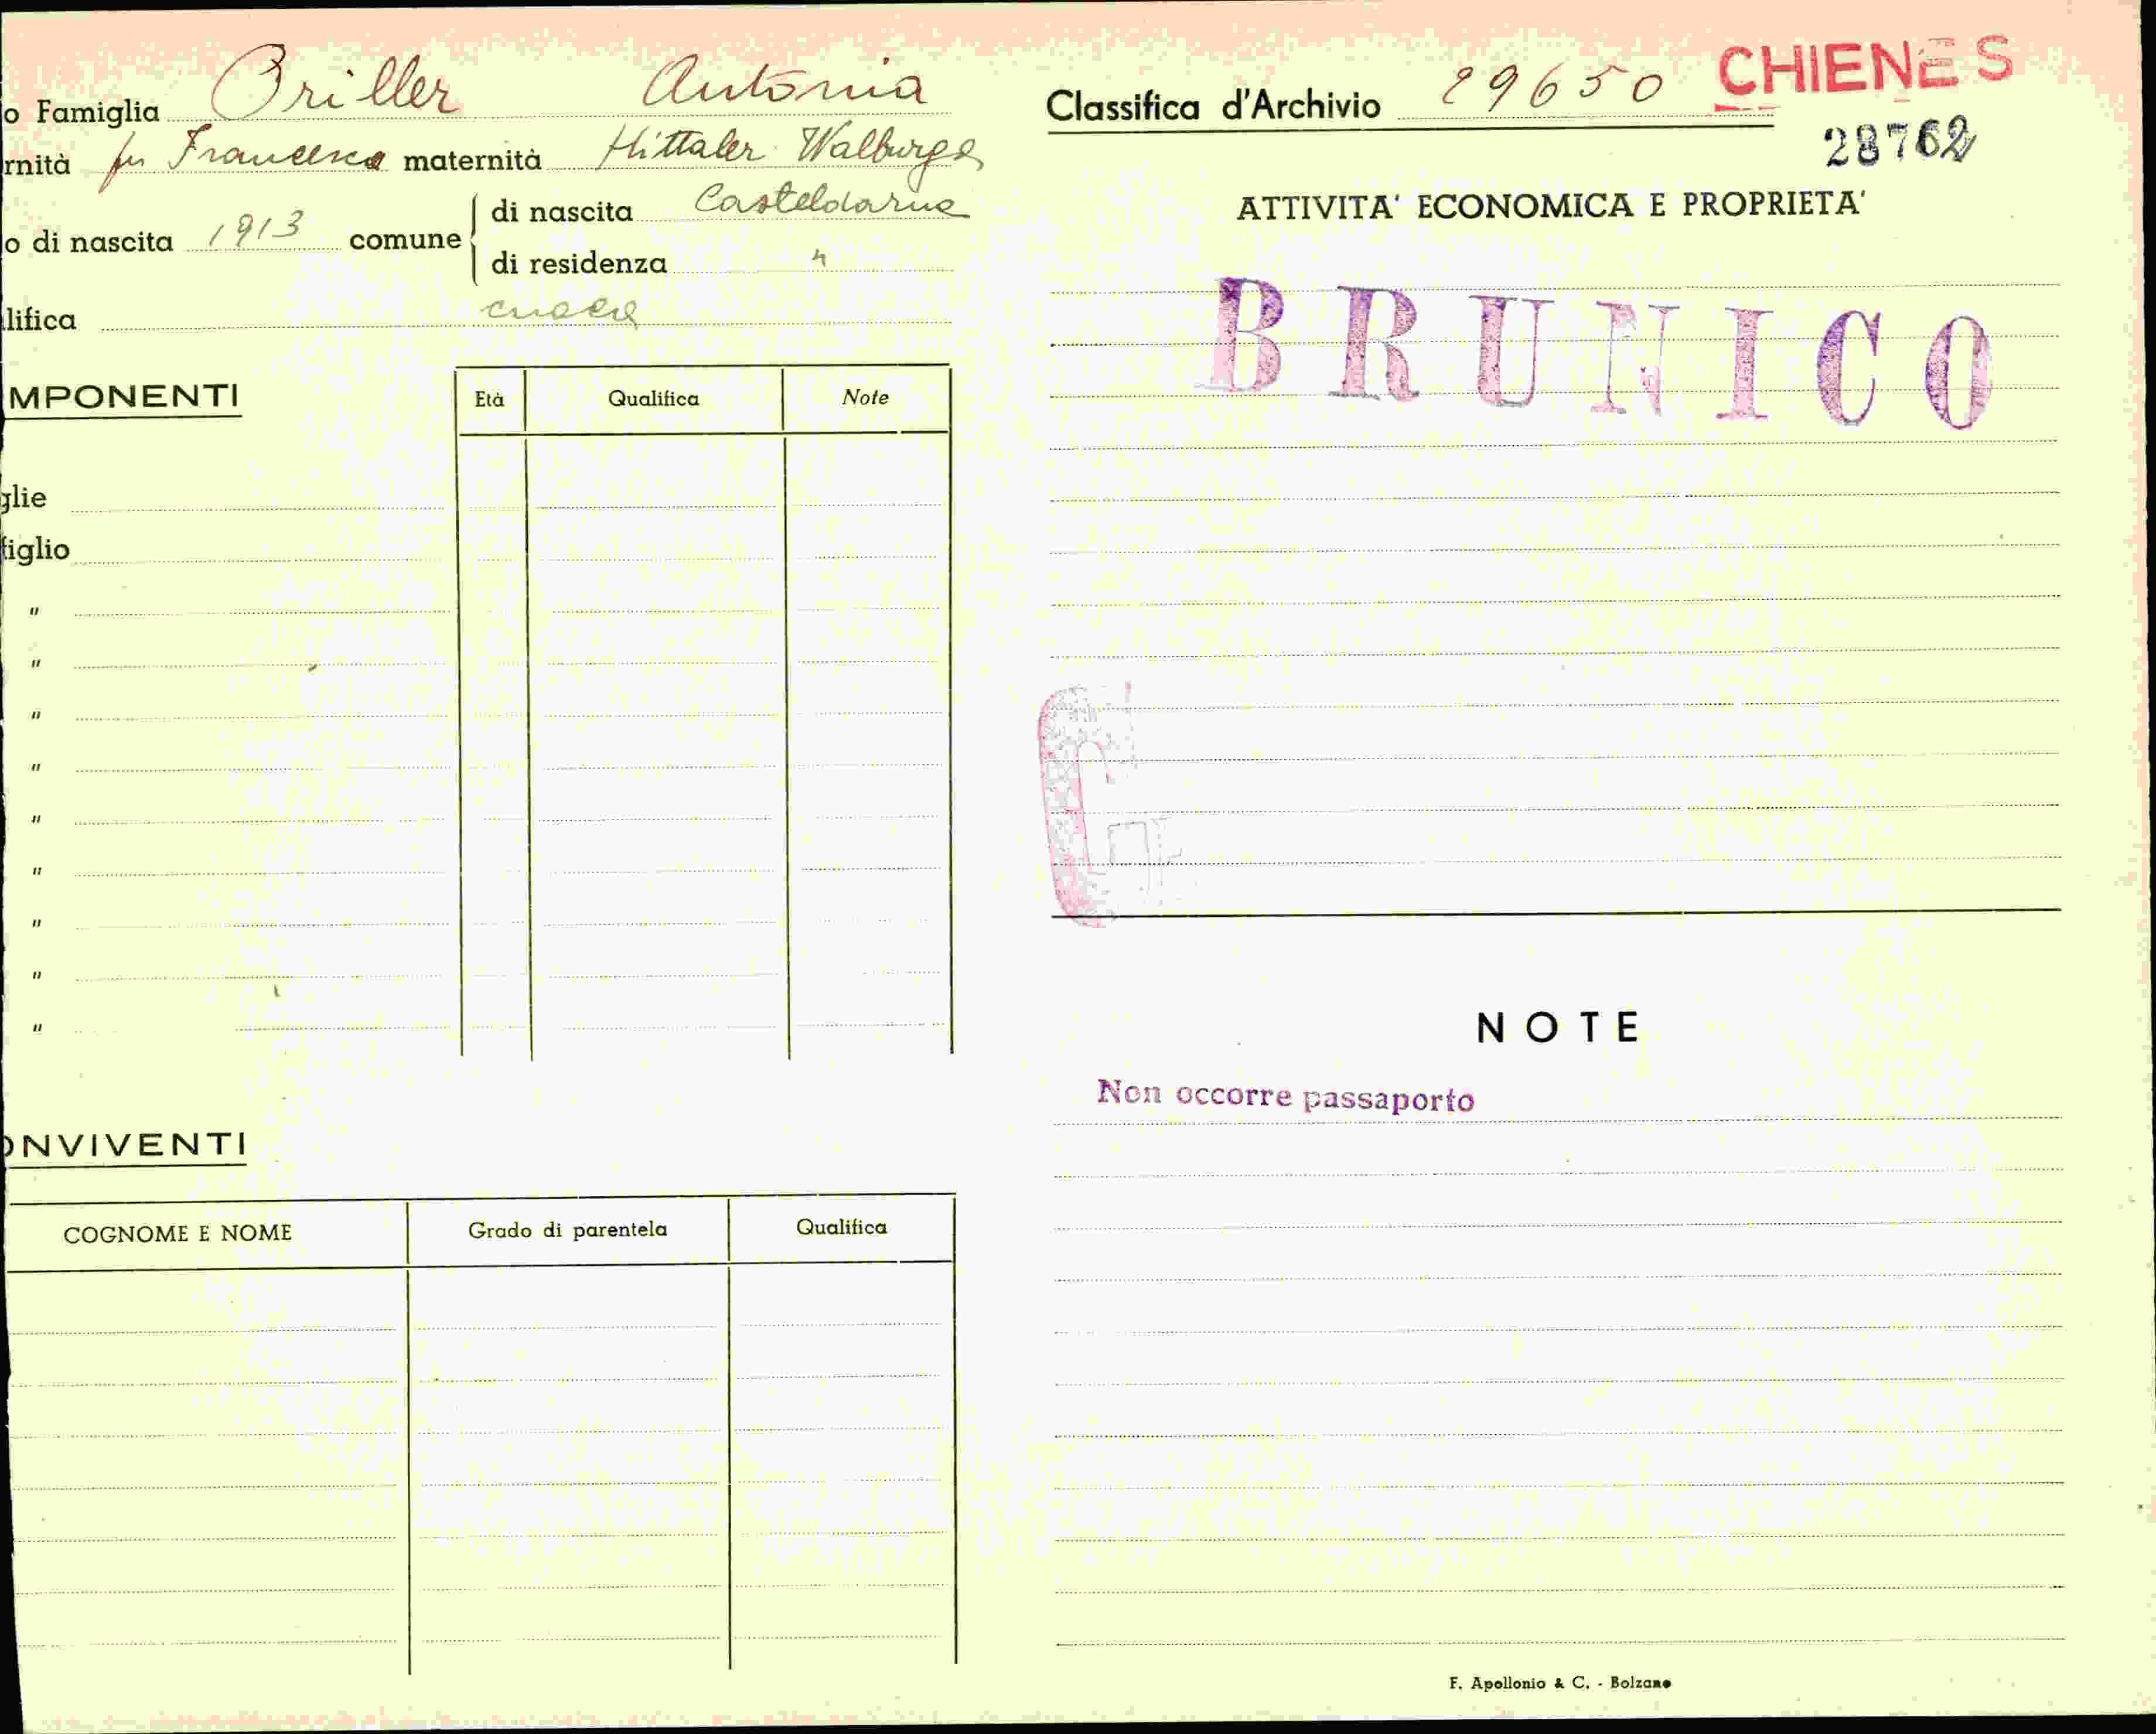 o Famiglia Briller Antonia
rnità fu Francesco maternità Hittaler Walburga
o di nascita 1913 comune di nascita Casteldarne
di residenza "
lifica cuoca
MPONENTI
Età Qualifica Note
glie
figlio
"
"
"
"
"
"
"
"
"
ONVIVENTI
COGNOME E NOME Grado di parentela Qualifica
Classifica d'Archivio 29650 CHIENES
28762
ATTIVITA' ECONOMICA E PROPRIETA'
BRUNICO
NOTE
Non occorre passaporto
F. Apollonio & C. - Bolzano